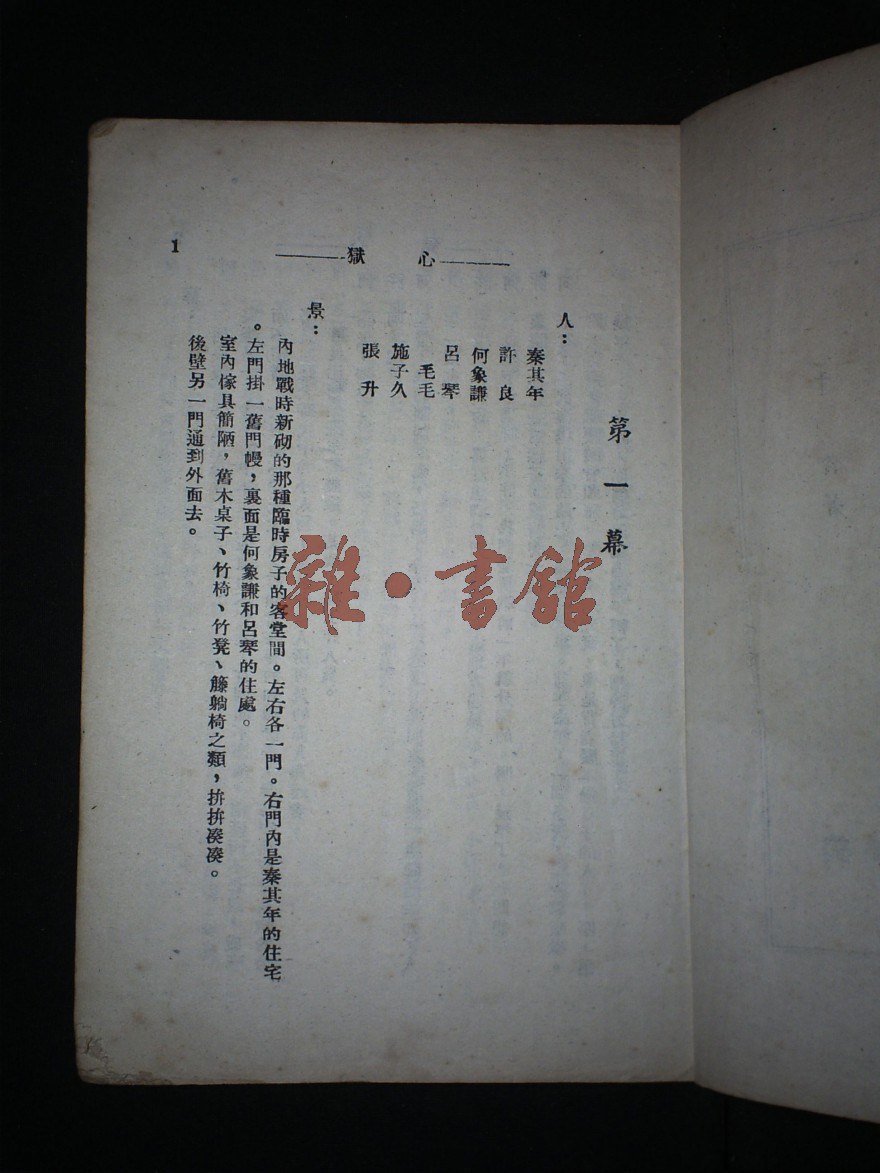 心獄
1
第一幕
人：
秦其年
許良
何象謙
呂琴
毛毛
施子久
張升
景：
內地戰時新砌的那種臨時房子的客堂間。左右各一門。右門內是秦其年的住宅
。左門掛一舊門幔，裏面是何象謙和呂琴的住處。
室內傢具簡陋，舊木桌子、竹椅、竹凳、籐躺椅之類，拚拚湊湊。
後壁另一門通到外面去。
雜·書館